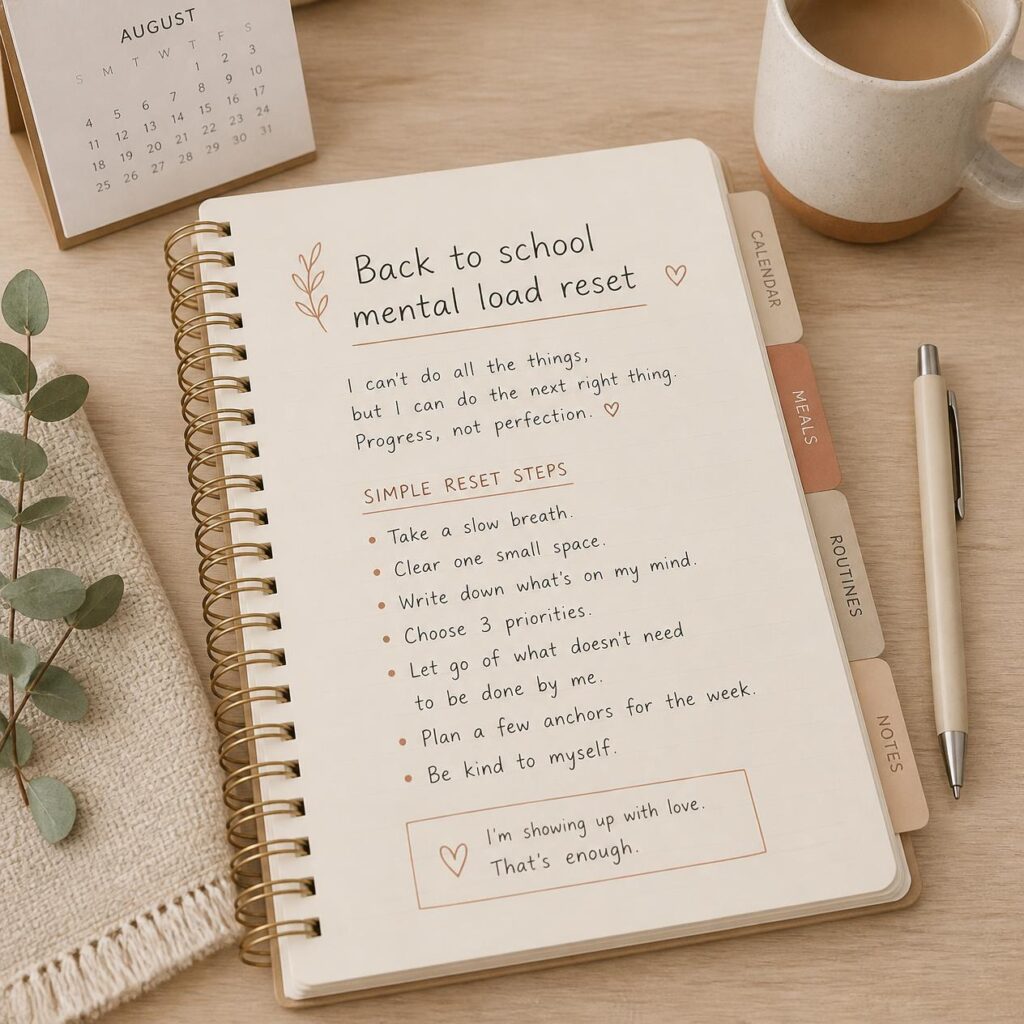 AUGUST
S M T W T F S
1 2 3
4 5 6 7 8 9 10
11 12 13 14 15 16 17
18 19 20 21 22 23 24
25 26 27 28 29 30 31
Back to school
mental load reset
I can't do all the things,
but I can do the next right thing.
Progress, not perfection.
SIMPLE RESET STEPS
• Take a slow breath.
• Clear one small space.
• Write down what's on my mind.
• Choose 3 priorities.
• Let go of what doesn't need
to be done by me.
• Plan a few anchors for the week.
• Be kind to myself.
I'm showing up with love.
That's enough.
CALENDAR
MEALS
ROUTINES
NOTES